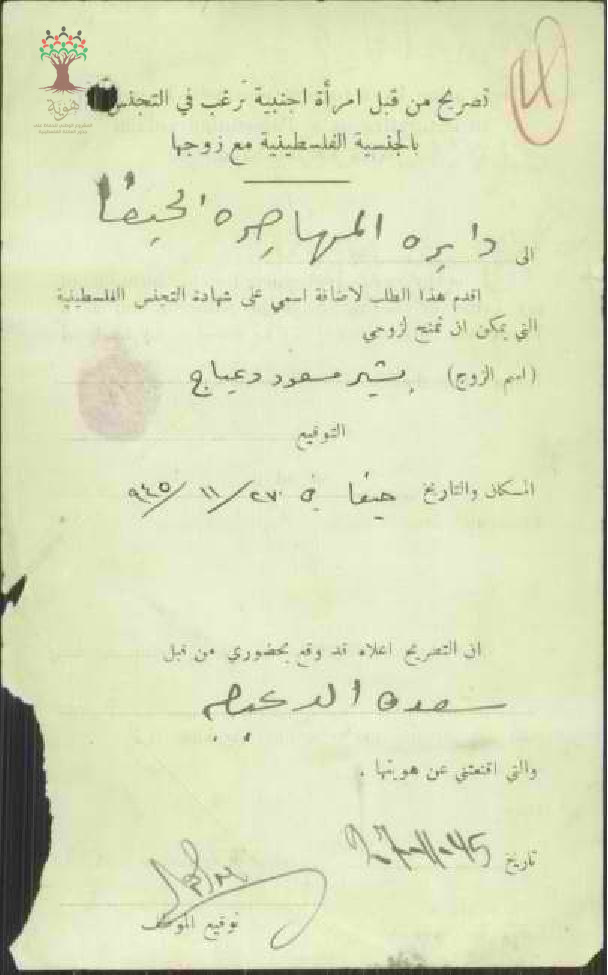 هوية
تصريح من قبل امرأة اجنبية ترغب في التجنس
بالجنسية الفلسطينية مع زوجها
الى دايره المهاجره الحيفا
اقدم هذا الطلب لاضافة اسمي على شهادة التجنس الفلسطينية
التي يمكن ان تمنح لزوجي
(اسم الزوج) بشير مسعود دعياج
التوقيع
المكان والتاريخ حيفا في ٢٧/١١/٩٤٥
ان التصريح اعلاه قد وقع بحضوري من قبل
سعده الد
والتي اقنعتني عن هويتها .
تاريخ 27-11-45
توقيع الموظف